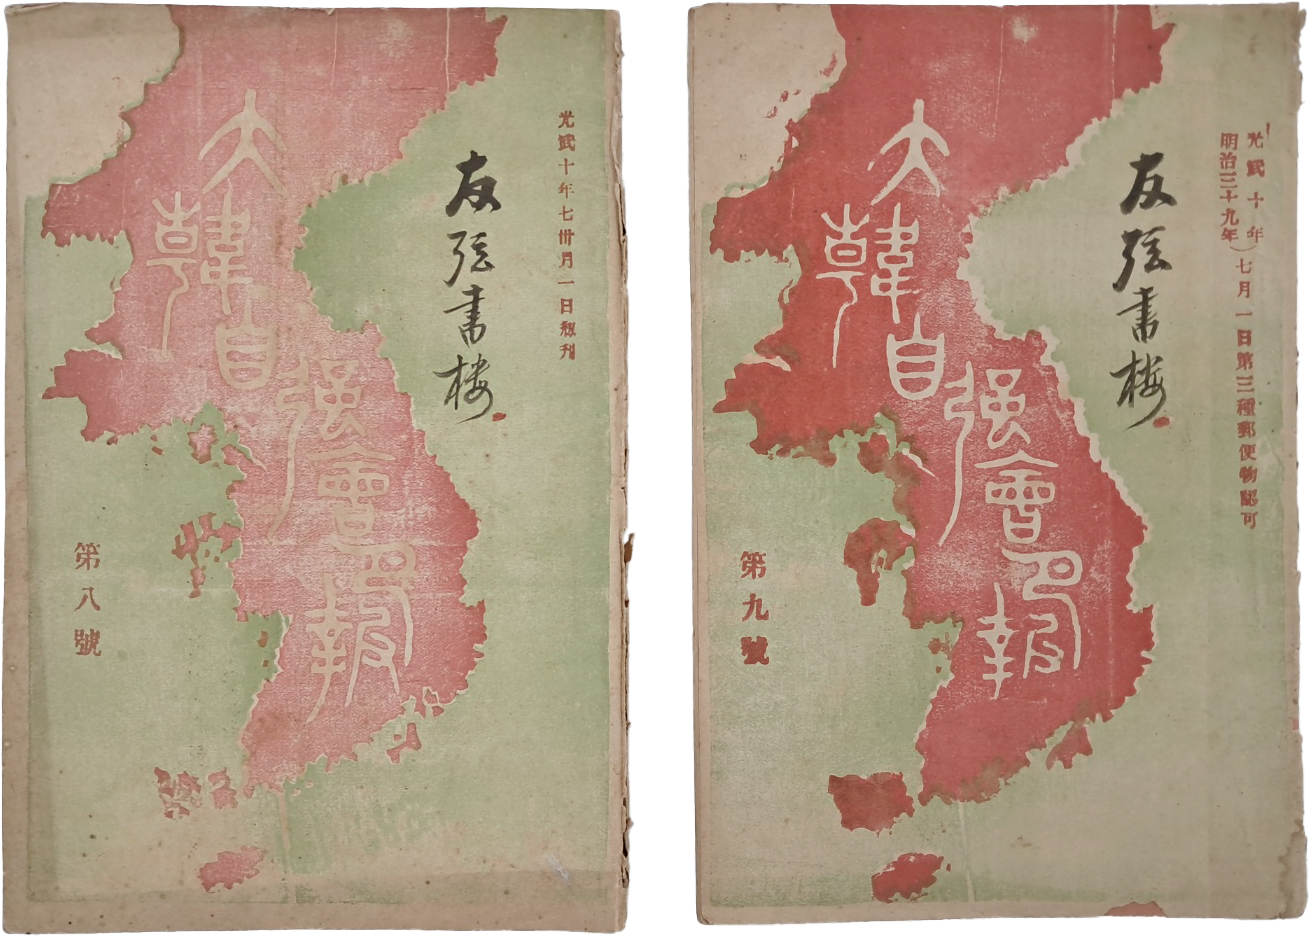 光武十年七卅月一日刱刊
友弦書樓
大韓自强會月報
第八號
光武十年
明治三十九年
七月一日第三種郵便物認可
友弦書樓
大韓自强會月報
第九號